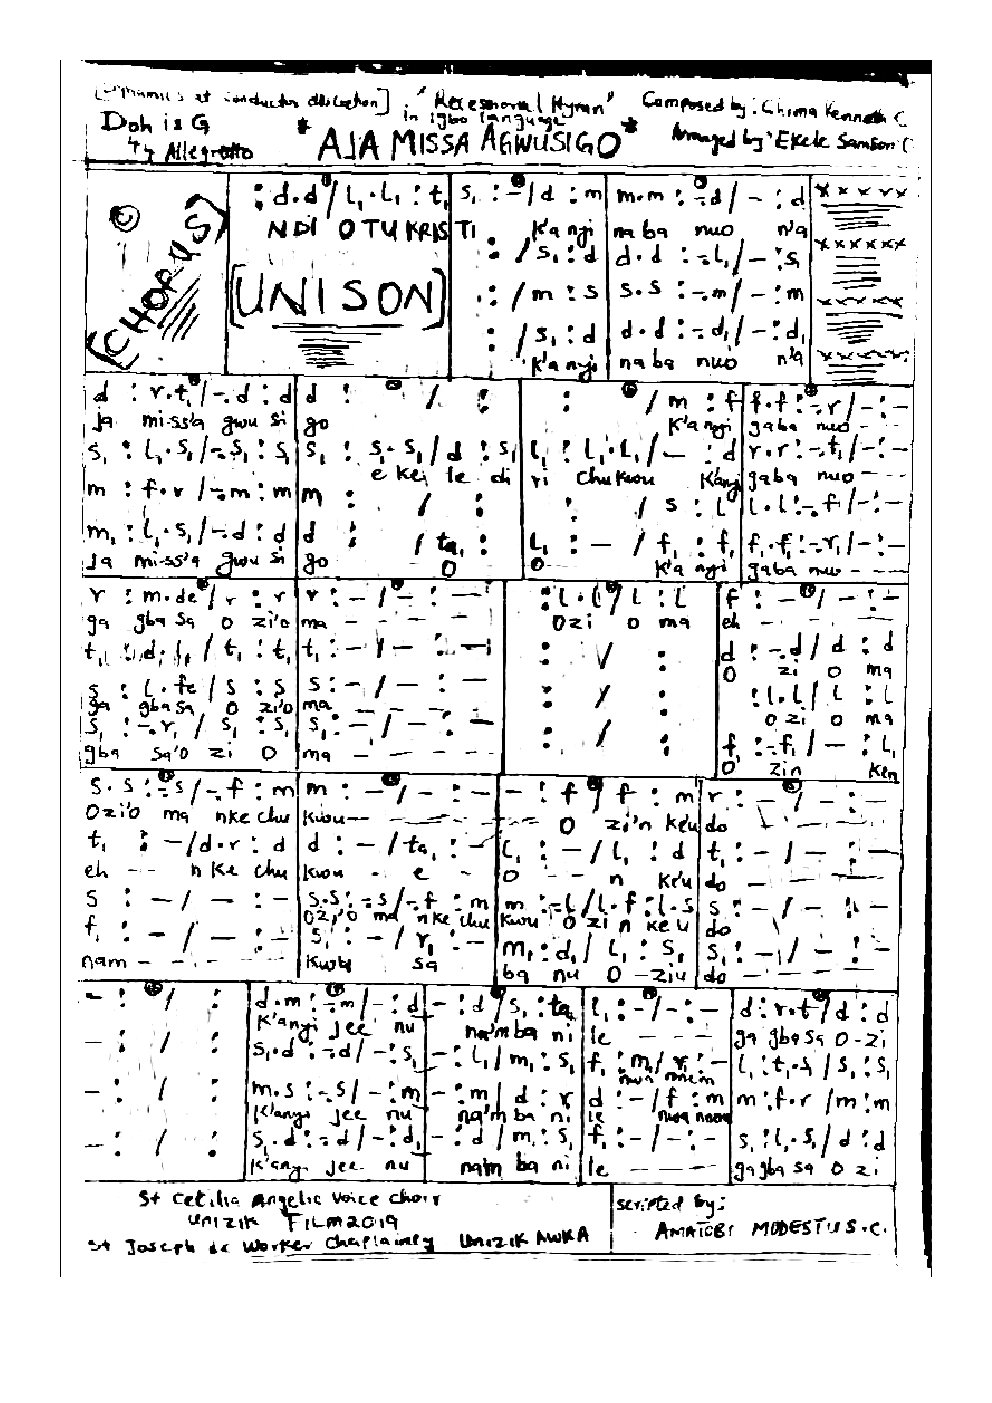 [Dynamics at conductor discretion] ; "Recessional Hymn" Composed by: Chima Kenneth C.
Doh is G in igbo language
4/4 Allegretto * AJA MISSA AGWUSIGO * Arranged by: Ekele Samson C
© [CHORUS]
: d.d / l₁.l₁ : t₁ s₁ : – / d : m m.m : –.d / – : d
NDI OTU KRIS TI. K'a nyi na ba nuo n'a
[UNISON] : / s₁ : d d.d : –.l₁ / – : s₁
: / m : s s.s : –.m / – : m
: / s₁ : d d.d : –.d₁ / – : d₁
K'a nyi na ba nuo n'a
d : r.t₁ / –.d : d d : / : : / m : f f.f : –.r / – : –
ja mi-ss'a gwu si go K'a nyi ga ba nuo – –
s₁ : l₁.s₁ / –.s₁ : s₁ s₁ : s₁.s₁ / d : s₁ l₁ : l₁.l₁ / – : d r.r : –.t₁ / – : –
e kei le di ri chukwu K'anyi gaba nuo – – –
m : f.r / –.m : m m : / : : / s : l l.l : –.f / – : –
m₁ : l₁.s₁ / –.d : d d : / ta₁ : l₁ : – / f₁ : f₁ f₁.f₁ : –.r₁ / – : –
ja mi-ss'a gwu si go O O – – K'a nyi gaba nuo – – –
r : m.de / r : r r : – / – : – : l.l / l : l f : – / – : –
ga gba sa O zi'o ma – – – – Ozi O ma eh – – – –
t₁ : d.l₁ / t₁ : t₁ t₁ : – / – : – : / : d : –.d / d : d
O zi O ma
s : l.fe / s : s s : – / – : – : / : : l.l / l : l
ga gba sa O zi'o ma – – – – O zi O ma
s₁ : –.r₁ / s₁ : s₁ s₁ : – / – : – : / : f₁ : –.f₁ / – : l₁
gba sa'o zi O ma – – – – O zin ken
s.s : –.s / –.f : m m : – / – : – – : f / f : m r : – / – : –
Ozi'o ma nke chu kwu – – O zi'n ke'u do – – –
t₁ : – / d.r : d d : – / ta₁ : – l₁ : – / l₁ : d t₁ : – / – : –
eh – – n ke chu kwu – e – O – n ke'u do – – – –
s : – / – : – s.s : –.s / –.f : m m : –.l / l.f : l.s s : – / – : –
Ozi'o ma nke chu kwu O zi n ke u do
f₁ : – / – : – s₁ : – / r₁ : – m₁ : d₁ / l₁ : s₁ s₁ : – / – : –
nam – – – – sa ba nu O – ziu do – – –
– : / : d.m : –.m / – : d – : d / s₁ : ta₁ l₁ : – / – : – d : r.t₁ / d : d
K'anyi jee nu na'm ba ni le – – – ga gba sa O-zi
– : / : s₁.d : –.d / – : s₁ – : l₁ / m₁ : s₁ f₁ : m₁ / r₁ : – l₁ : t₁.s₁ / s₁ : s₁
– : / : m.s : –.s / – : m – : m / d : r d : – / f : m m : f.r / m : m
K'anyi jee nu na'm ba ni le
– : / : s₁.d : –.d / – : d₁ – : d / m₁ : s₁ f₁ : – / – : – s₁ : l₁.s₁ / d : d
K'anyi jee nu nam ba ni le – – – – ga gba sa O zi
St Cecilia Angelic Voice choir scripted by:
UNIZIK FILM2019 AMATOBI MODESTUS.C.
St Joseph de Worker Chaplaincy UNIZIK AWKA